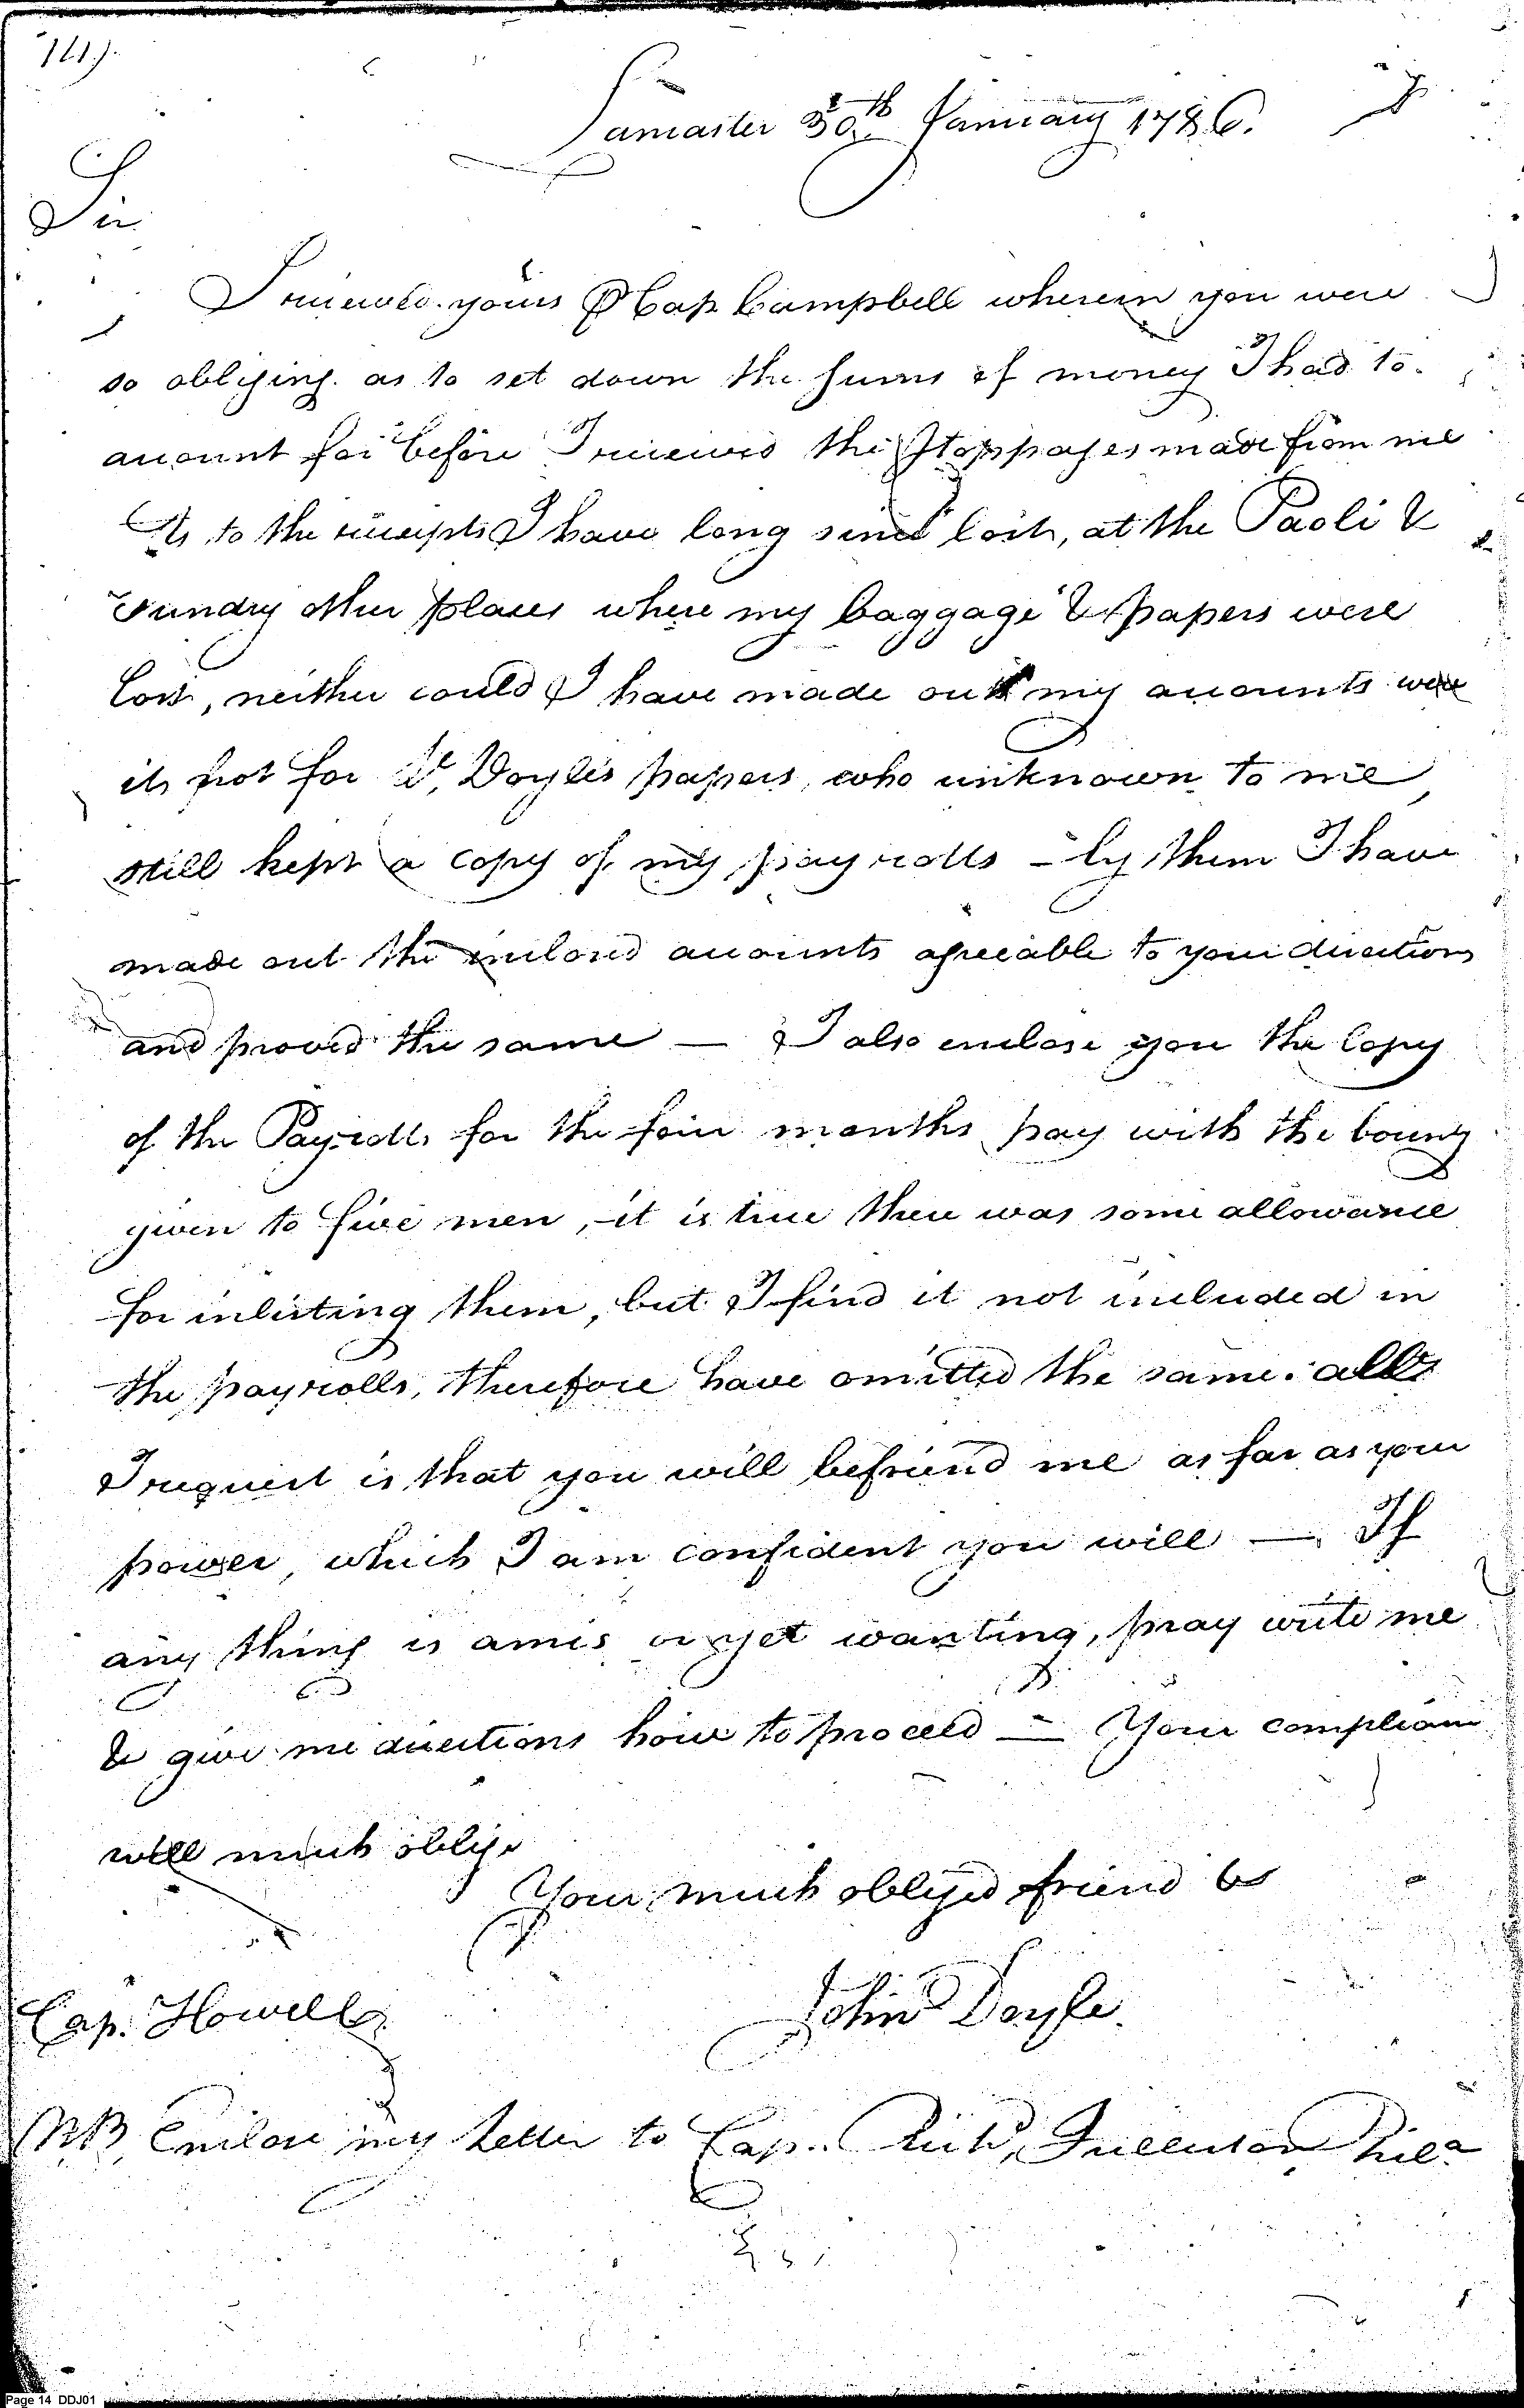 14).
Lancaster 30th January 1786.
Sir
I received yours ⅌ Cap Campbell wherein you were
so obliging as to set down the sums of money I had to
account for before I received the Stoppages made from me
As to the receipts I have long since lost, at the Paoli &
Sundry other places where my baggage & papers were
lost, neither could I have made out my accounts were
it not for Lt. Doyles papers, who unknown to me,
still kept a copy of my payrolls - by them I have
made out the inclosed accounts agreeable to your directions
and proved the same — I also enclose you the Copy
of the Payrolls for the four months pay with the bounty
given to five men, it is true there was some allowance
for inlisting them, but I find it not included in
the payrolls, therefore have omitted the same. all
I request is that you will befriend me as far as your
power, which I am confident you will — If
any thing is amis or yet wanting, pray write me
& give me directions how to proceed — Your compliance
will much oblige
Your much obliged friend &c
John Doyle.
Cap. Howell
NB, Enclose my Letter to Cap. Phila
Page 14 DDJ01